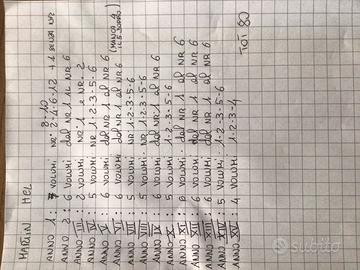 MARTIN HEL
8-10
ANNO 1 : 7 VOLUMI NR. 2-4-6-12 +1 SENZA NR
ANNO 2 : 6 VOLUMI DAL NR 1 AL NR 6
ANNO III : 2 VOLUMI NR 1 E NR. 2
ANNO IV : 5 VOLUMI NR 1-2-3-5-6
ANNO V : 6 VOLUMI DAL NR 1 AL NR 6
ANNO VI : 6 VOLUMI DAL NR 1 AL NR 6 (MANCA 4
ANNO VII : 5 VOLUMI NR 1-2-3-5-6
ANNO VIII : 5 VOLUMI NR 1-2-3-5-6
ANNO IX : 6 VOLUMI DAL NR 1 AL NR 6
ANNO X : 5 VOLUMI 1-2-3-5-6
ANNO XI : 6 VOLUMI DAL NR 1 AL NR 6
ANNO XII : 6 VOLUMI DAL NR 1 AL NR 6
ANNO XIII : 6 VOLUMI DAL NR 1 AL NR 6
ANNO XIV : 5 VOLUMI 1-2-3-5-6
ANNO XV : 4 VOLUMI 1-2-3-4
TOT 80
subito